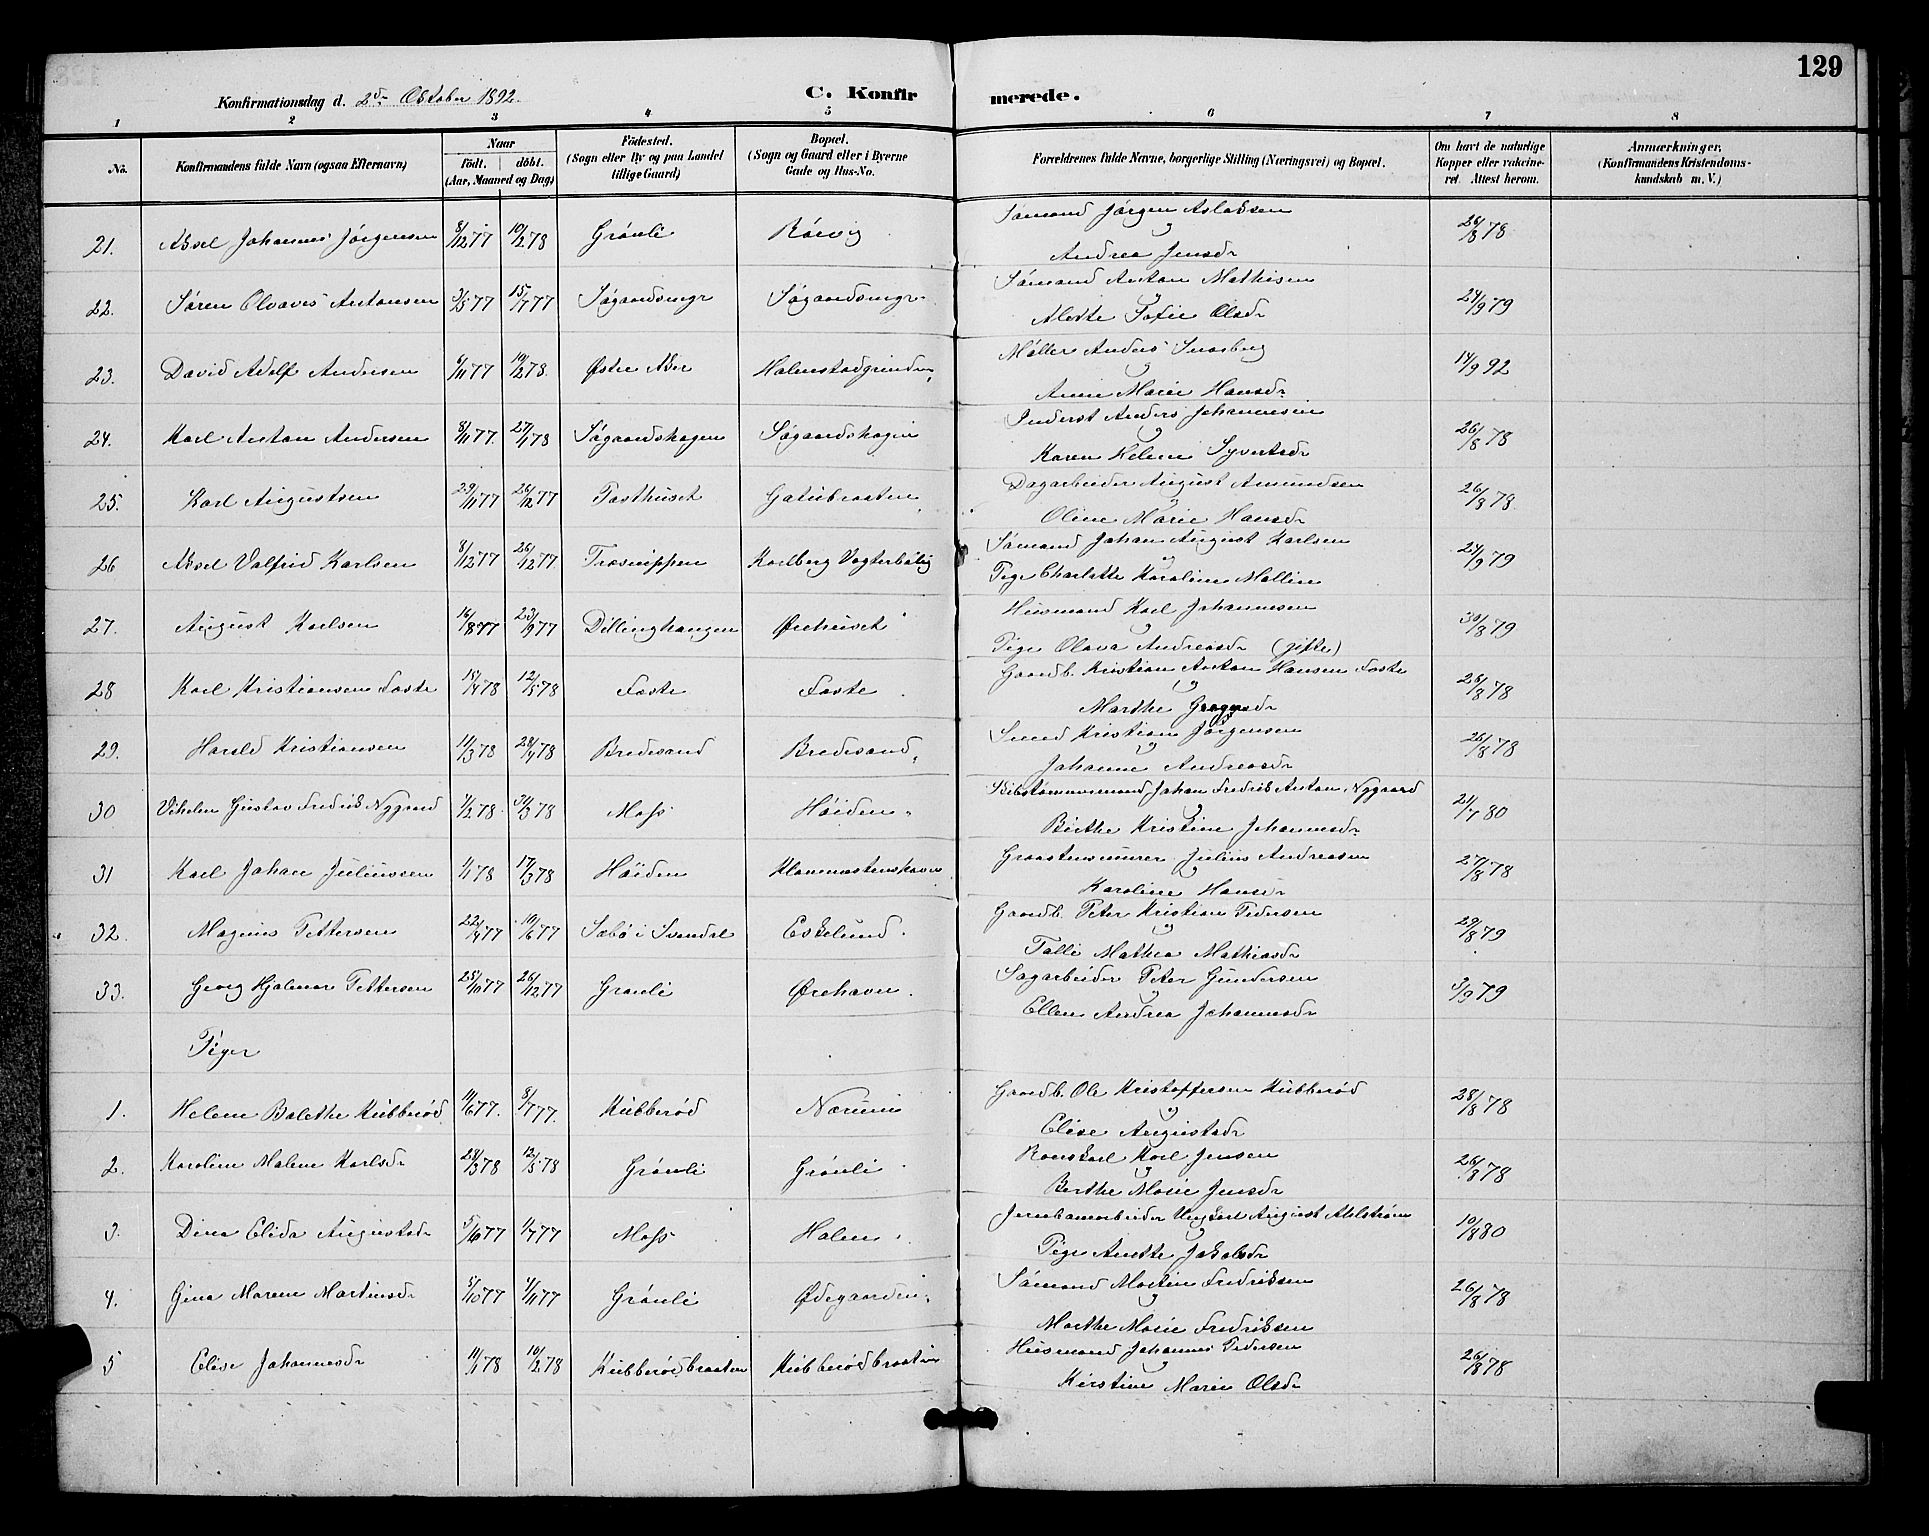 129
Konfirmationsdag d. 2den Oktober 1892.
C. Konfirmerede.
1 2 3 4 5 6 7 8
No.
Konfirmandens fulde Navn (ogsaa Efternavn)
Naar
födt. döbt.
(Aar, Maaned og Dag)
Födested.
(Sogn eller By og paa Landet
tillige Gaard)
Bopæl.
(Sogn og Gaard eller i Byerne
Gade og Hus-No.
Forældrenes fulde Navne, borgerlige Stilling (Næringsvei) og Bopæl.
Om havt de naturlige
Kopper eller vakcine-
ret. Attest herom.
Anmærkninger.
(Konfirmandens Kristendoms-
kundskab m. V.)
21. Aksel Johannes Jörgensen 8/12 77 10/2 78 Grönli Rörvig Sømand Jørgen Aslaksen 26/8 78
Andrea Jensdr
22. Søren Olvaves Antonsen 3/5 77 15/7 77 Søgaardsengr Søgaardsengr. Sømand Anton Mathisen 24/9 79
Alette Sofie Olsdr
23. David Adolf Andersen 6/11 77 10/2 78. Østre Aker Halmstadgrinden, Møller Anders Snarberg 14/9 92
Anne Marie Hansdr
24. Karl Anton Andersen 8/11 77. 27/1 78 Søgaardshagen Søgaardshagen Inderst Anders Johannesen 26/8 78
Karen Helene Syvertsdr
25. Karl Augustsen 29/11 77 26/12 77 Tasthuset Gatubraaten, Dagarbeider August Amundsen 26/8 78.
Oline Marie Hansdr
26 Aksel Valfrid Karlsen 8/12 77 26/12 77 Træsnippen Karlberg Vogterbolig Sømand Johan August Karlsen 24/9 79
Pige Charlotte Karoline Mallin
27. August Karlsen 16/8 77 23/9 77 Dillinghaugen Ørehuset Husmand Karl Johannesen 30/8 79
Pige Olava Andreasdr (gifte)
28 Karl Kristiansen Faste 15/4 78 12/5 78 Faste Faste. Gaardb. Kristian Anton Hansen Faste 26/8 78
Marthe Gregersdr
29. Harald Kristiansen 11/3 78 28/4 78 Bredesand Bredesand, Smed Kristian Jørgensen 26/8 78
Johanne Andreasdr
30 Vilhelm Gustav Fredrik Nygaard 1/2 78. 31/3 78 Moss Høiden. Skibstømmermand Johan Fredrik Anton Nygaard 21/7 80
Birthe Kristine Johannesdr
31 Karl Johan Juliussen 1/1 78 17/3 78 Høiden Graastensmurer Julius Andreasen 27/8 78
Karoline Hansdr
32. Magnus Pettersen 22/4 77 10/6 77 Sæbö i Svendal Eskelund. Gaardb. Peter Kristian Pedersen 29/8 79
Talli Mathea Mathiasdr
33. Georg Hjalmar Pettersen 25/10 77 26/12 77 Grönli Ørehavn. Sagarbeider Peter Gundersen 3/9 79
Ellen Andrea Johannesdr
Piger
1. Helene Balethe Kubberød. 11/6 77. 8/7 77. Kubberød Nærum Gaardb. Ole Kristoffersen Kubberød 28/8 78
Elise Augustadr
2. Karoline Malene Karlsdr 28/3 78 12/5 78 Grönli Grönli. Karl Jensen 26/8 78
Berthe Marie Jensdr
3. Dina Elida Augustsdr 5/6 77 1/7 77 Moss Halen. Jernbanearbeider Ungkarl August Ahlstrøm 10/8 80
Pige Anette Jakobsdr
4. Gina Maren Martinsdr 5/10 77 4/11 77 Grönli Ødegaarden. Sømand Martin Fredriksen 26/8 78
Marthe Marie Fredriksen
5 Elise Johannesdr 11/1 78 10/2 78 Kubberødbraaten Kubberødbraaten Husmand Johannes Pedersen 26/8 78
Kirstine Marie Olsdr